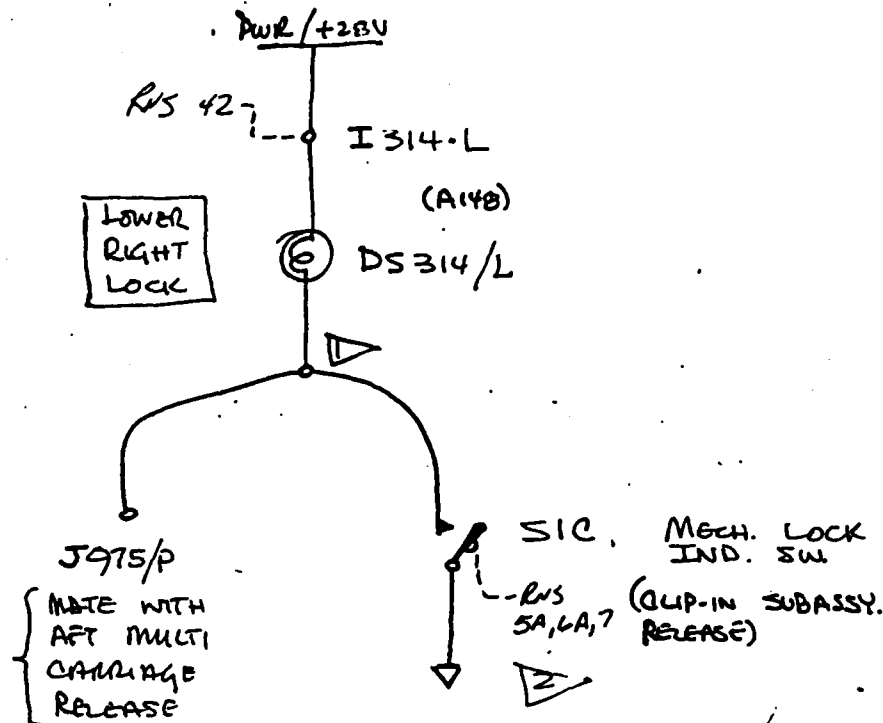 PWR/+28V
RNS 42
I314-L
(A148)
LOWER
RIGHT
LOCK
DS314/L
1
J975/P
MATE WITH
AFT MULTI
CARRIAGE
RELEASE
S1C. MECH. LOCK
IND. SW.
RNS
5A,6A,7
(CLIP-IN SUBASSY.
RELEASE)
2